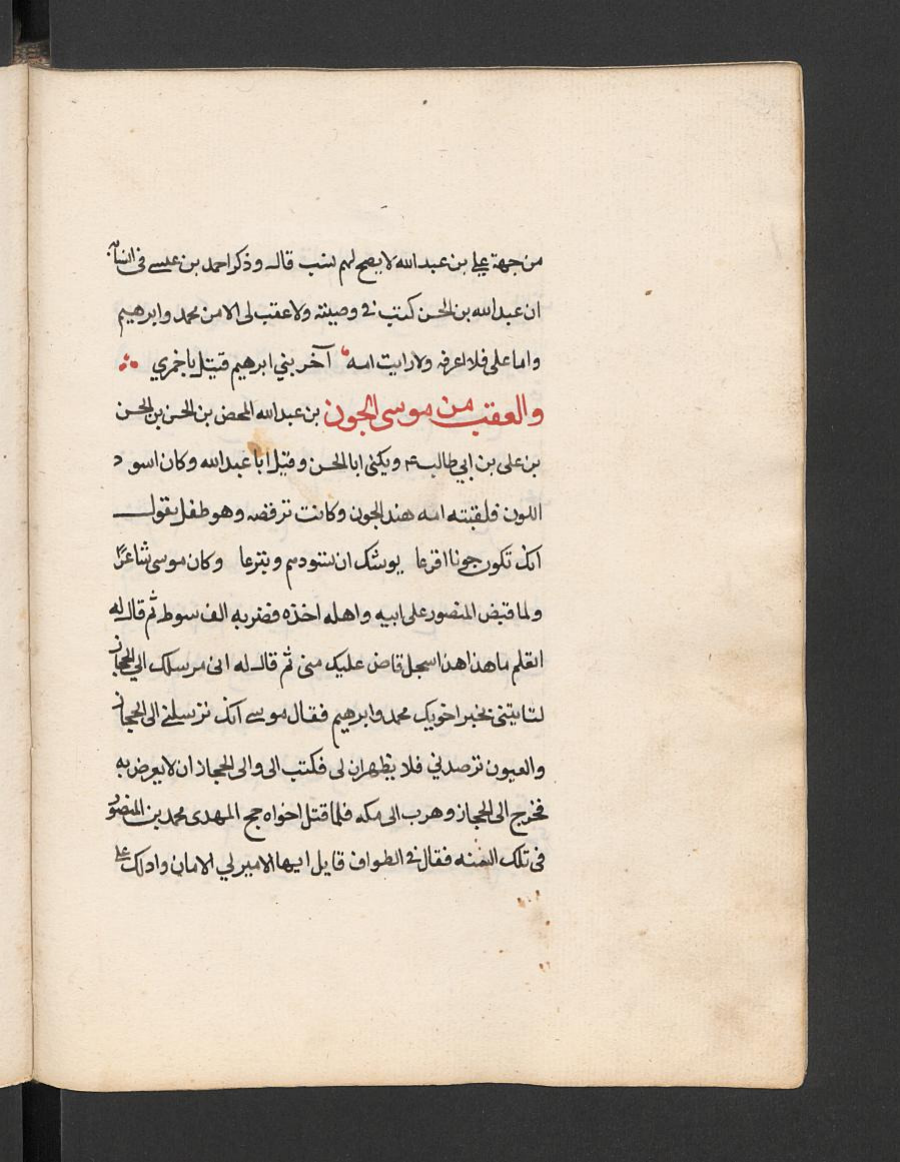 من جهة علي بن عبدالله لا يصح لهم نسب قال وذكر احمد بن عيسى في انسابه
ان عبدالله بن الحسن كتب في وصيته ولا عقب لى الا من محمد وابرهيم
واما على فلا اعرفه ولا رايت امه آخر بني ابرهيم قتيل باخمري
والعقب من موسى الجون بن عبدالله المحض بن الحسن بن الحسن
بن على بن ابي طالب ع ويكنى ابا الحسن وقيل ابا عبدالله وكان اسود
اللون فلقبته امه هند الجون وكانت ترقصه وهو طفل بقول
انك تكون جونا افرعا يوشك ان تسودهم وتبرعا وكان موسى شاعرًا
ولما قبض المنصور على ابيه واهله اخذه فضربه الف سوط ثم قال له
اتعلم ما هذا هذا سجل فاض عليك منى ثم قال له انى مرسلك الى الحجاز
لتاتيتنى بخبر اخويك محمد وابرهيم فقال موسى انك ترسلنى الى الحجاز
والعيون ترصدني فلا يظهران لى فكتب الى والى الحجاز ان لا يعرض به
فخرج الى الحجاز وهرب الى مكه فلما قتل اخواه حج المهدى محمد بن المنصور
فى تلك السنه فقال فى الطواف قايل ايها الامير لي الامان وادلك على